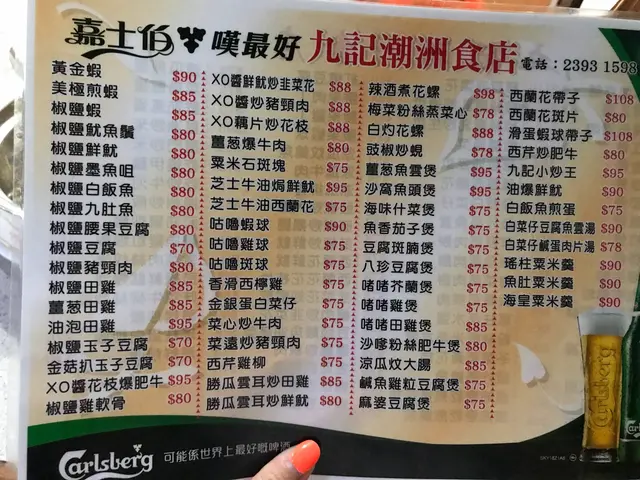 嘉士伯 嘆最好 九記潮洲食店 電話：2393 1598
黃金蝦 $90
美極煎蝦 $85
椒鹽蝦 $85
椒鹽魷魚鬚 $80
椒鹽鮮魷 $80
椒鹽墨魚咀 $80
椒鹽白飯魚 $80
椒鹽九肚魚 $80
椒鹽腰果豆腐 $80
椒鹽豆腐 $70
椒鹽豬頸肉 $80
椒鹽田雞 $85
薑葱田雞 $85
油泡田雞 $95
椒鹽玉子豆腐 $70
金菇扒玉子豆腐 $70
XO醬花枝爆肥牛 $95
椒鹽雞軟骨 $80
XO醬鮮魷炒韭菜花 $88
XO醬炒豬頸肉 $88
XO藕片炒花枝 $88
薑葱爆牛肉 $80
粟米石斑塊 $75
芝士牛油焗鮮魷 $95
芝士牛油西蘭花 $75
咕嚕蝦球 $90
咕嚕雞球 $75
咕嚕斑球 $75
香滑西檸雞 $75
金銀蛋白菜仔 $75
菜心炒牛肉 $75
菜遠炒豬頸肉 $75
西芹雞柳 $75
勝瓜雲耳炒田雞 $85
勝瓜雲耳炒鮮魷 $80
辣酒煮花螺 $98
梅菜粉絲蒸菜心 $78
白灼花螺 $88
豉椒炒蜆 $78
薑葱魚雲煲 $95
沙窩魚頭煲 $95
海味什菜煲 $75
魚香茄子煲 $75
豆腐斑腩煲 $75
八珍豆腐煲 $75
啫啫芥蘭煲 $75
啫啫雞煲 $75
啫啫田雞煲 $85
沙嗲粉絲肥牛煲 $80
涼瓜炆大腸 $85
鹹魚雞粒豆腐煲 $75
麻婆豆腐煲 $75
西蘭花帶子 $108
西蘭花斑片 $80
滑蛋蝦球帶子 $108
西芹炒肥牛 $80
九記小炒王 $95
油爆鮮魷 $90
白飯魚煎蛋 $75
白菜仔豆腐魚雲湯 $90
白菜仔鹹蛋肉片湯 $78
瑤柱粟米羹 $90
魚肚粟米羹 $90
海皇粟米羹 $90
Carlsberg 可能係世界上最好嘅啤酒
Carlsberg